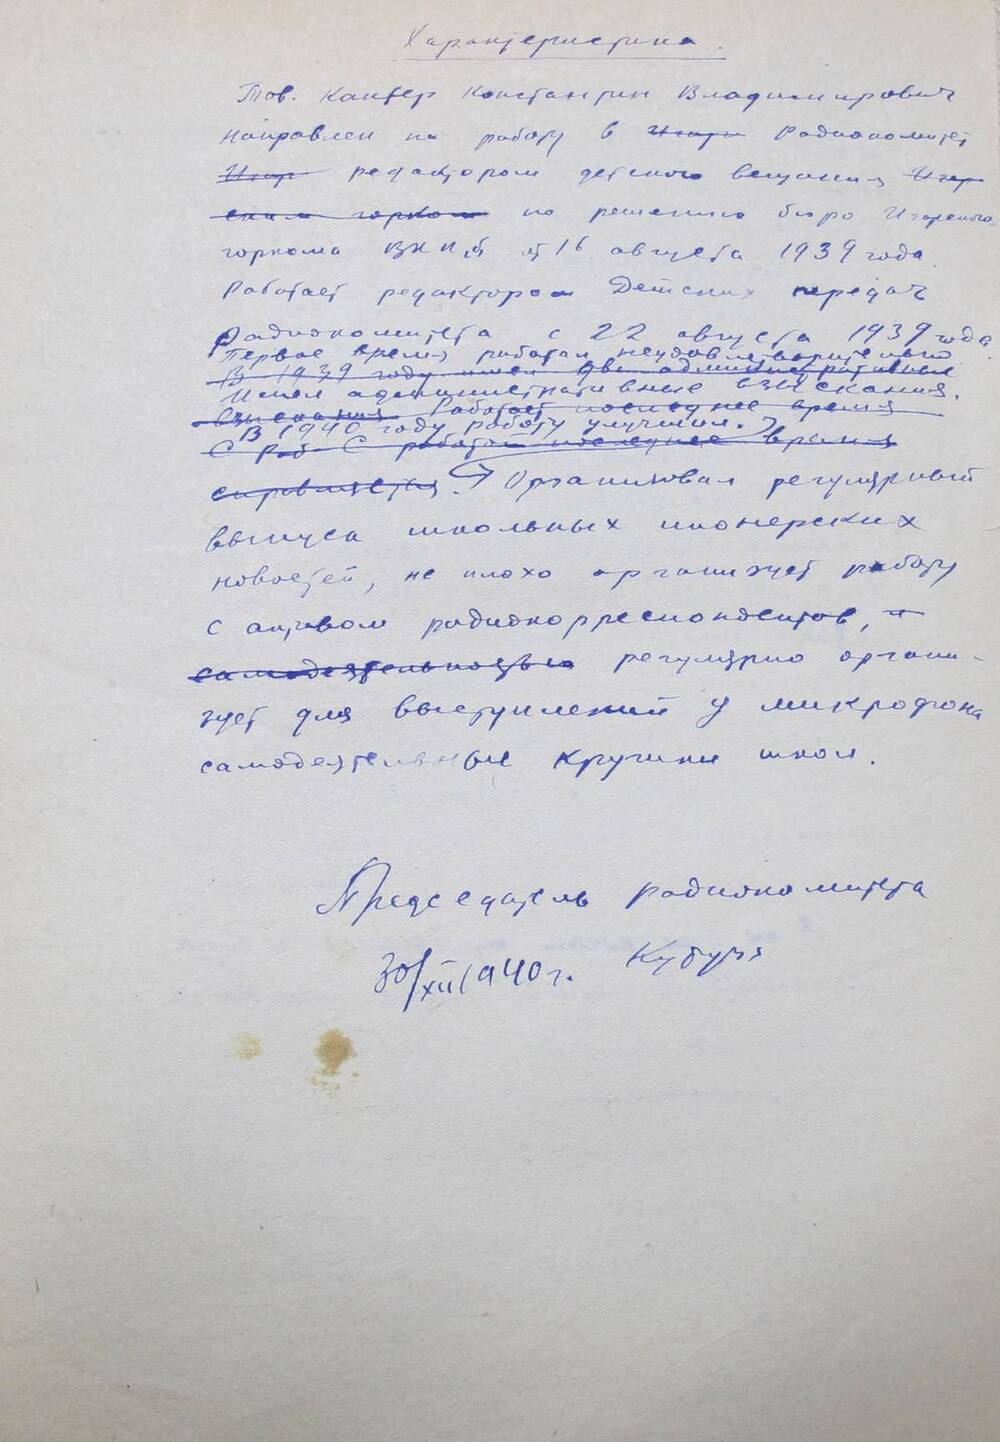 Характеристика.
Тов. Кантер Константин Владимирович
направлен на работу в Игар Радиокомитет
Игар редактором детского вещания Игар
ским горком по решению бюро Игарского
горкома ВКП/б от 16 августа 1939 года.
Работает редактором Детских передач
Радиокомитета с 22 августа 1939 года
Первое время работал неудовлетворительно
В 1939 году имел две административные
Имел административные взыскания.
взыскания Работает последнее время
В 1940 году работу улучшил.
С раб С работой последнее время
справляется. Организовал регулярный
выпуск школьных пионерских
новостей, не плохо организует работу
с активом радиокорреспондентов, и
самодеятельностью регулярно органи-
зует для выступлений у микрофона
самодеятельные кружки школ.
Председатель радиокомитета
30/XII 1940 г.